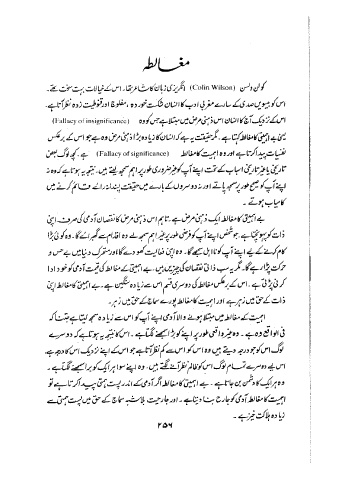 مغالطہ
کولن ولسن (Colin Wilson) انگریزی زبان کا شاعر تھا۔ اس کے خیالات بہت سخت تھے۔
اس کو بیسویں صدی کے سارے مغربی ادب کا انسان شکست خوردہ، مفلوج اور قنوطیت زدہ نظر آتا ہے۔
اس کے نزدیک آج کا انسان اس ذہنی مرض میں مبتلا ہے جس کو وہ (Fallacy of insignificance)
یعنی بے اہمیتی کا مغالطہ کہتا ہے۔ مگر حقیقت یہ ہے کہ انسان کا زیادہ بڑا ذہنی مرض وہ ہے جو اس کے برعکس
نفسیات پیدا کرتا ہے اور وہ اہمیت کا مغالطہ (Fallacy of significance) ہے۔ کچھ لوگ بعض
تاریخی یا غیر تاریخی اسباب کے تحت اپنے آپ کو غیر ضروری طور پر اہم سمجھ لیتے ہیں۔ نتیجہ یہ ہوتا ہے کہ وہ نہ
اپنے آپ کو صحیح طور پر سمجھ پاتے اور نہ دوسروں کے بارے میں حقیقت پسندانہ رائے قائم کرنے میں
کامیاب ہوتے۔
بے اہمیتی کا مغالطہ ایک ذہنی مرض ہے، تاہم اس ذہنی مرض کا نقصان آدمی کی صرف اپنی
ذات کو پہونچتا ہے، جو شخص اپنے آپ کو فرضی طور پر غیر اہم سمجھ لے وہ اقدام سے گھبرائے گا۔ وہ کوئی بڑا
کام کرنے کے لیے اپنے آپ کو نااہل سمجھے گا۔ وہ اپنی فعالیت کھو دے گا اور متحرک دنیا میں بے حس و
حرکت پڑا رہے گا۔ مگر یہ سب ذاتی نقصان کی چیزیں ہیں، بے اہمیتی کے مغالطہ کی قیمت آدمی کو خود ادا
کرنی پڑتی ہے۔ اس کے برعکس مغالطہ کی دوسری قسم اس سے زیادہ سنگین ہے۔ بے اہمیتی کا مغالطہ اپنی
ذات کے حق میں زہر ہے اور اہمیت کا مغالطہ پورے سماج کے حق میں زہر۔
اہمیت کے مغالطہ میں مبتلا ہونے والا آدمی اپنے آپ کو اس سے زیادہ سمجھ لیتا ہے جتنا کہ
فی الواقع وہ ہے۔ وہ غیر واقعی طور پر اپنے کو بڑا سمجھنے لگتا ہے۔ اس کا نتیجہ یہ ہوتا ہے کہ دوسرے
لوگ اس کو جو درجہ دیتے ہیں وہ اس کو اس سے کم نظر آتا ہے جو اس کے اپنے نزدیک اس کا درجہ ہے،
اس لیے دوسرے تمام لوگ اس کو ظالم نظر آنے لگتے ہیں۔ وہ اپنے سوا ہر ایک کو برا سمجھنے لگتا ہے۔
وہ ہر ایک کا دشمن بن جاتا ہے۔ بے اہمیتی کا مغالطہ اگر آدمی کے اندر پست ہمتی پیدا کرتا ہے تو
اہمیت کا مغالطہ آدمی کو جارح بنا دیتا ہے۔ اور جارحیت بلاشبہ سماج کے حق میں پست ہمتی سے
زیادہ ہلاکت خیز ہے۔
۲۵۶